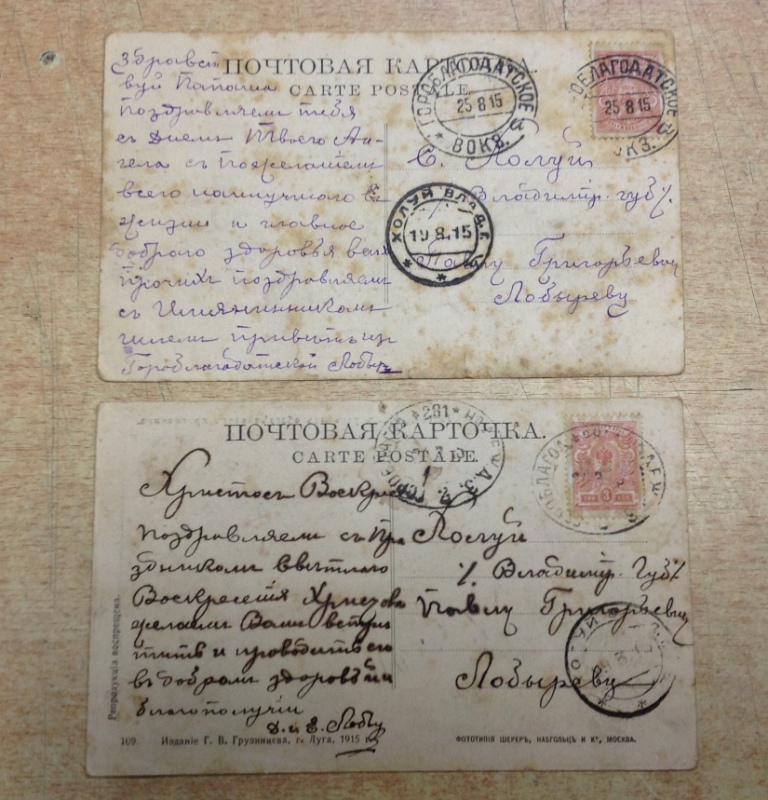 ПОЧТОВАЯ КАРТОЧКА.
CARTE POSTALE.
Здравст
вуй Папаша
поздравляем тебя
съ Днемъ Твоего Ан-
гела съ пожеланіем
всего наилучшого въ
жизни и главное
добраго здоровья всѣхъ
прочихъ поздравляем
съ Имянинникомъ
шлем приветъ из
Гороблагодатской Лобыр
ГОРОБЛАГОДАТСКОЕ
25 8 15
ВОКЗ.
ОБЛАГОДАТСКОЕ
25 8 15
ОКЗ.
С. Холуй
Владимір. губ
ХОЛУЙ ВЛАД. Г.
19.8.15
Павлу Григорьевичу
Лобыреву
ПОЧТОВАЯ КАРТОЧКА.
CARTE POSTALE.
*281*
3
Христосъ Воскресе
поздравляем съ пра
здником Свѣтлаго
Воскресенія Христова
желаем Вам встре
тить и проводить его
въ добром здоровьи
благополучіи
Д. и Е. Лобы
Холуй
Владимір. Губ
Павлу Григорьевичу
Лобыреву
Репродукція воспрещена.
109. Изданіе Г. В. Грузинцева, г. Луга, 1915 г.
ФОТОТИПІЯ ШЕРЕРЪ, НАБГОЛЬЦЪ И Кº, МОСКВА.